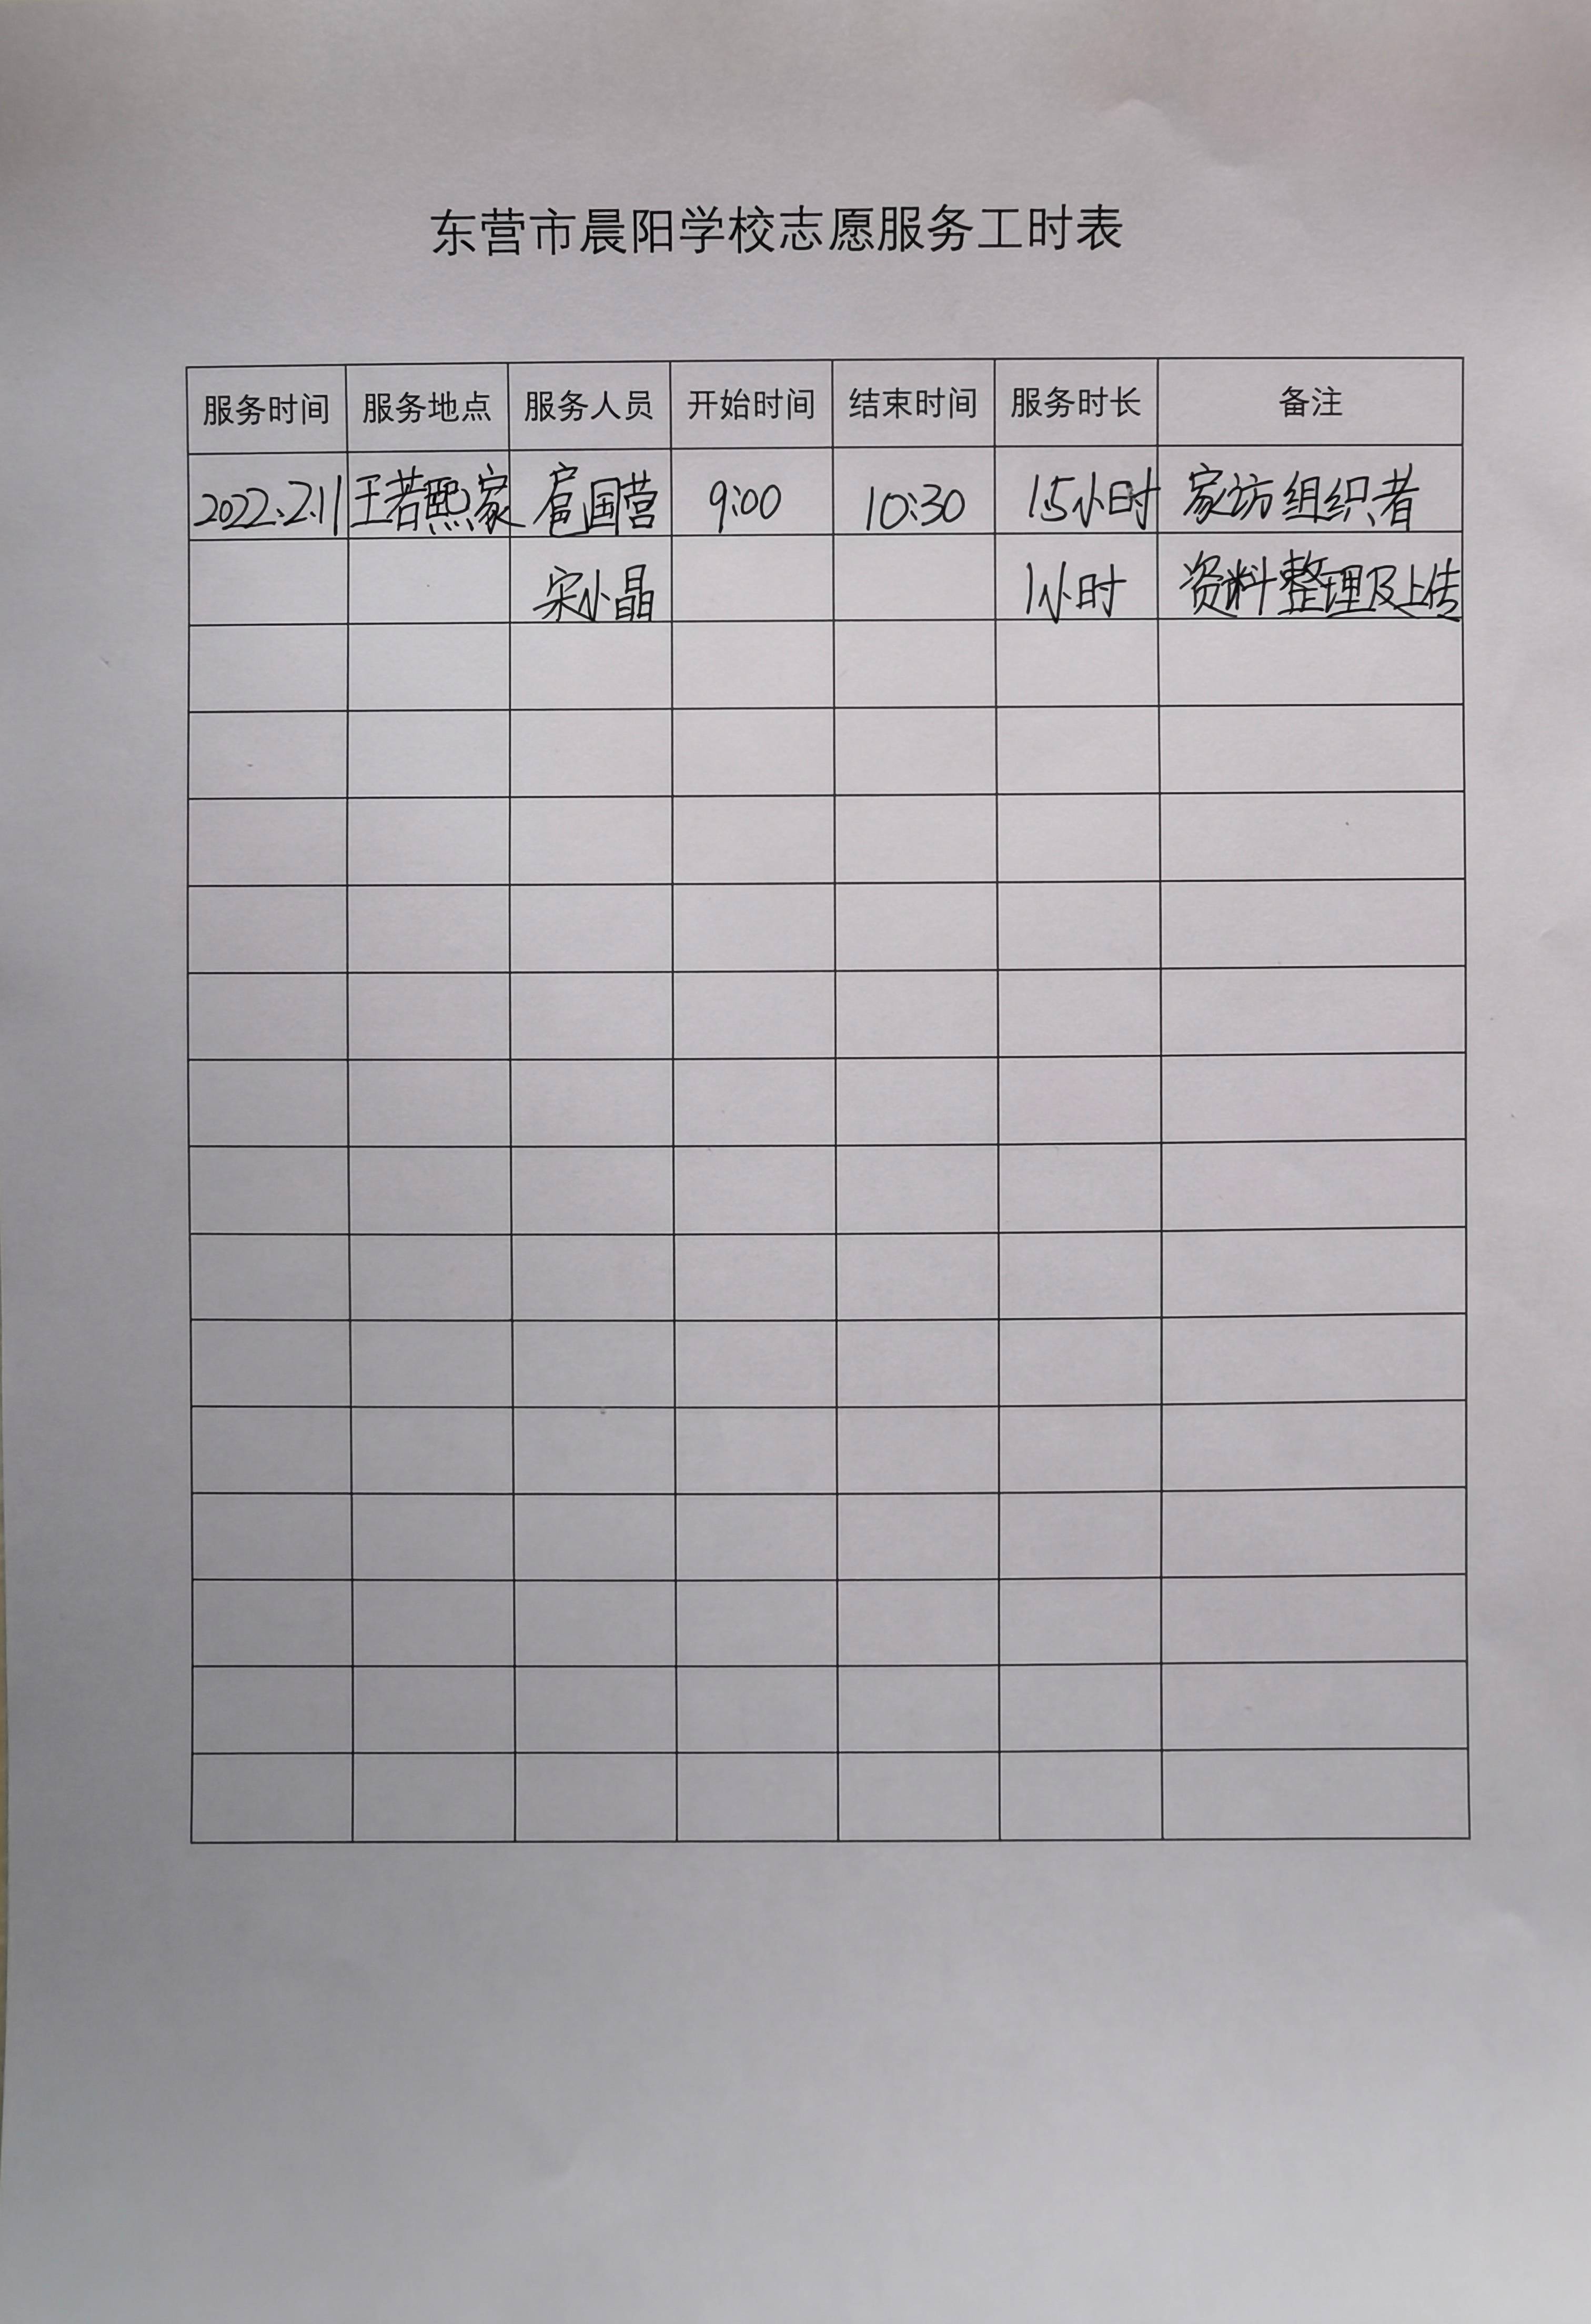 东营市晨阳学校志愿服务工时表
服务时间 服务地点 服务人员 开始时间 结束时间 服务时长 备注
2022.2.11 王若熙家 扈国营 9:00 10:30 1.5小时 家访组织者
宋小晶 1小时 资料整理及上传